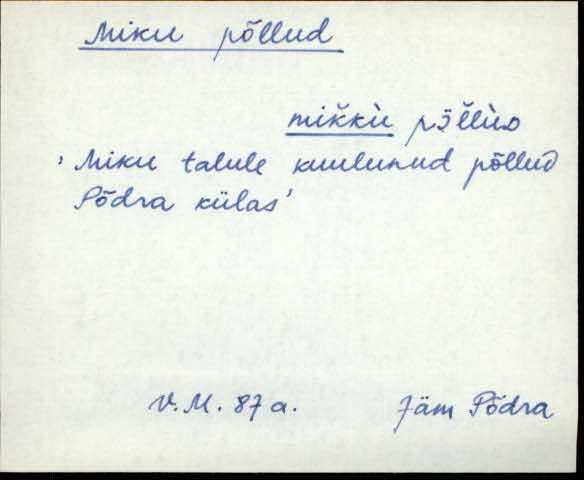 Miku põllud
mikku
'Miku talule kuulunud põllud
Põdra külas'
V.M. 87 a. Jäm Põdra